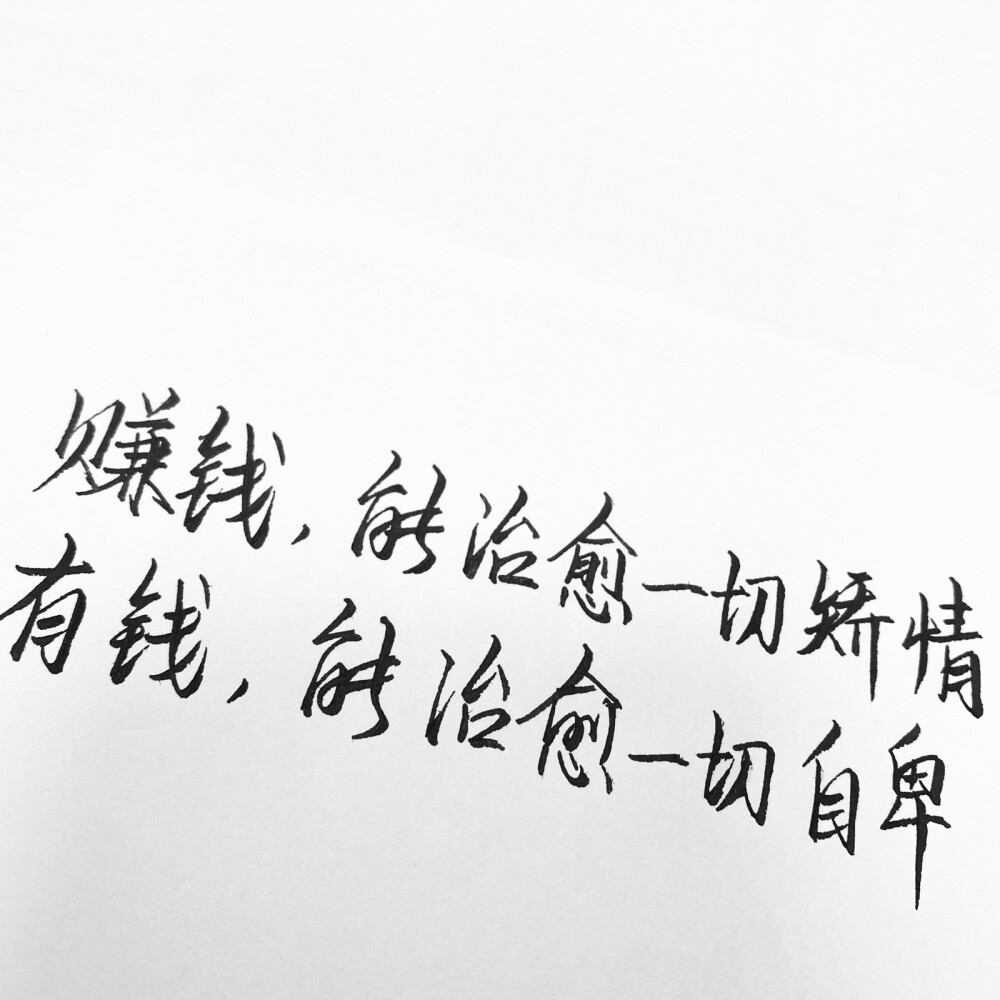 赚钱，能治愈一切矫情
有钱，能治愈一切自卑